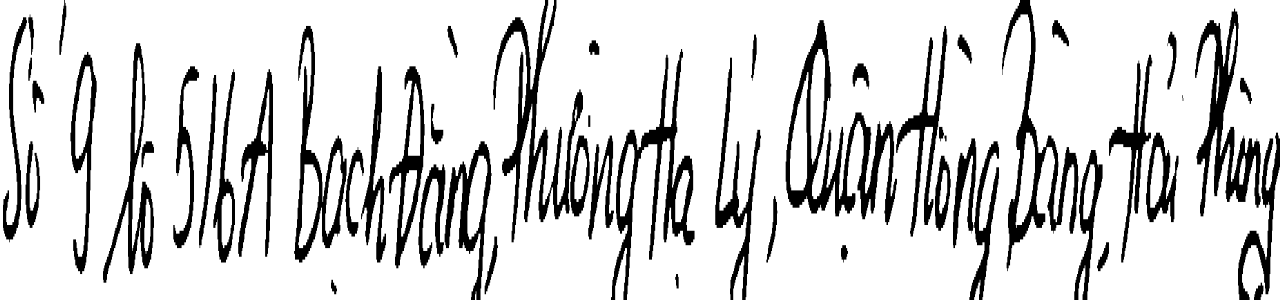 Số 9 lô 516A Bạch Đằng, Phường Hạ Lý, Quận Hồng Bàng, Hải Phòng